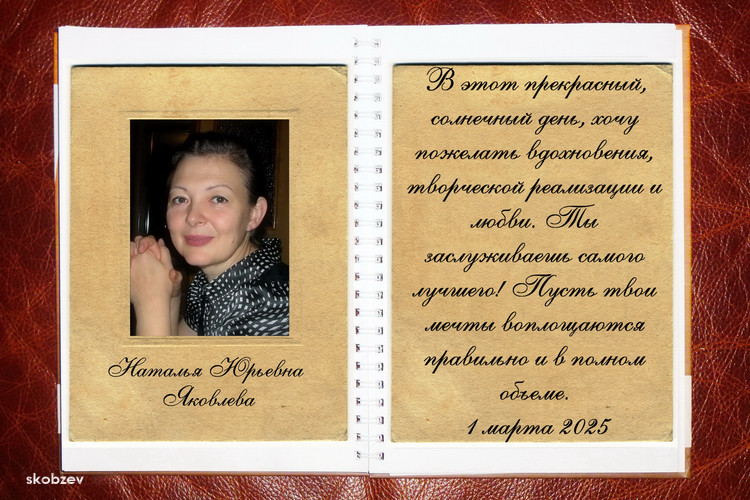 Наталья Юрьевна
Яковлева
В этот прекрасный,
солнечный день, хочу
пожелать вдохновения,
творческой реализации и
любви. Ты
заслуживаешь самого
лучшего! Пусть твои
мечты воплощаются
правильно и в полном
объеме.
1 марта 2025
skobzev